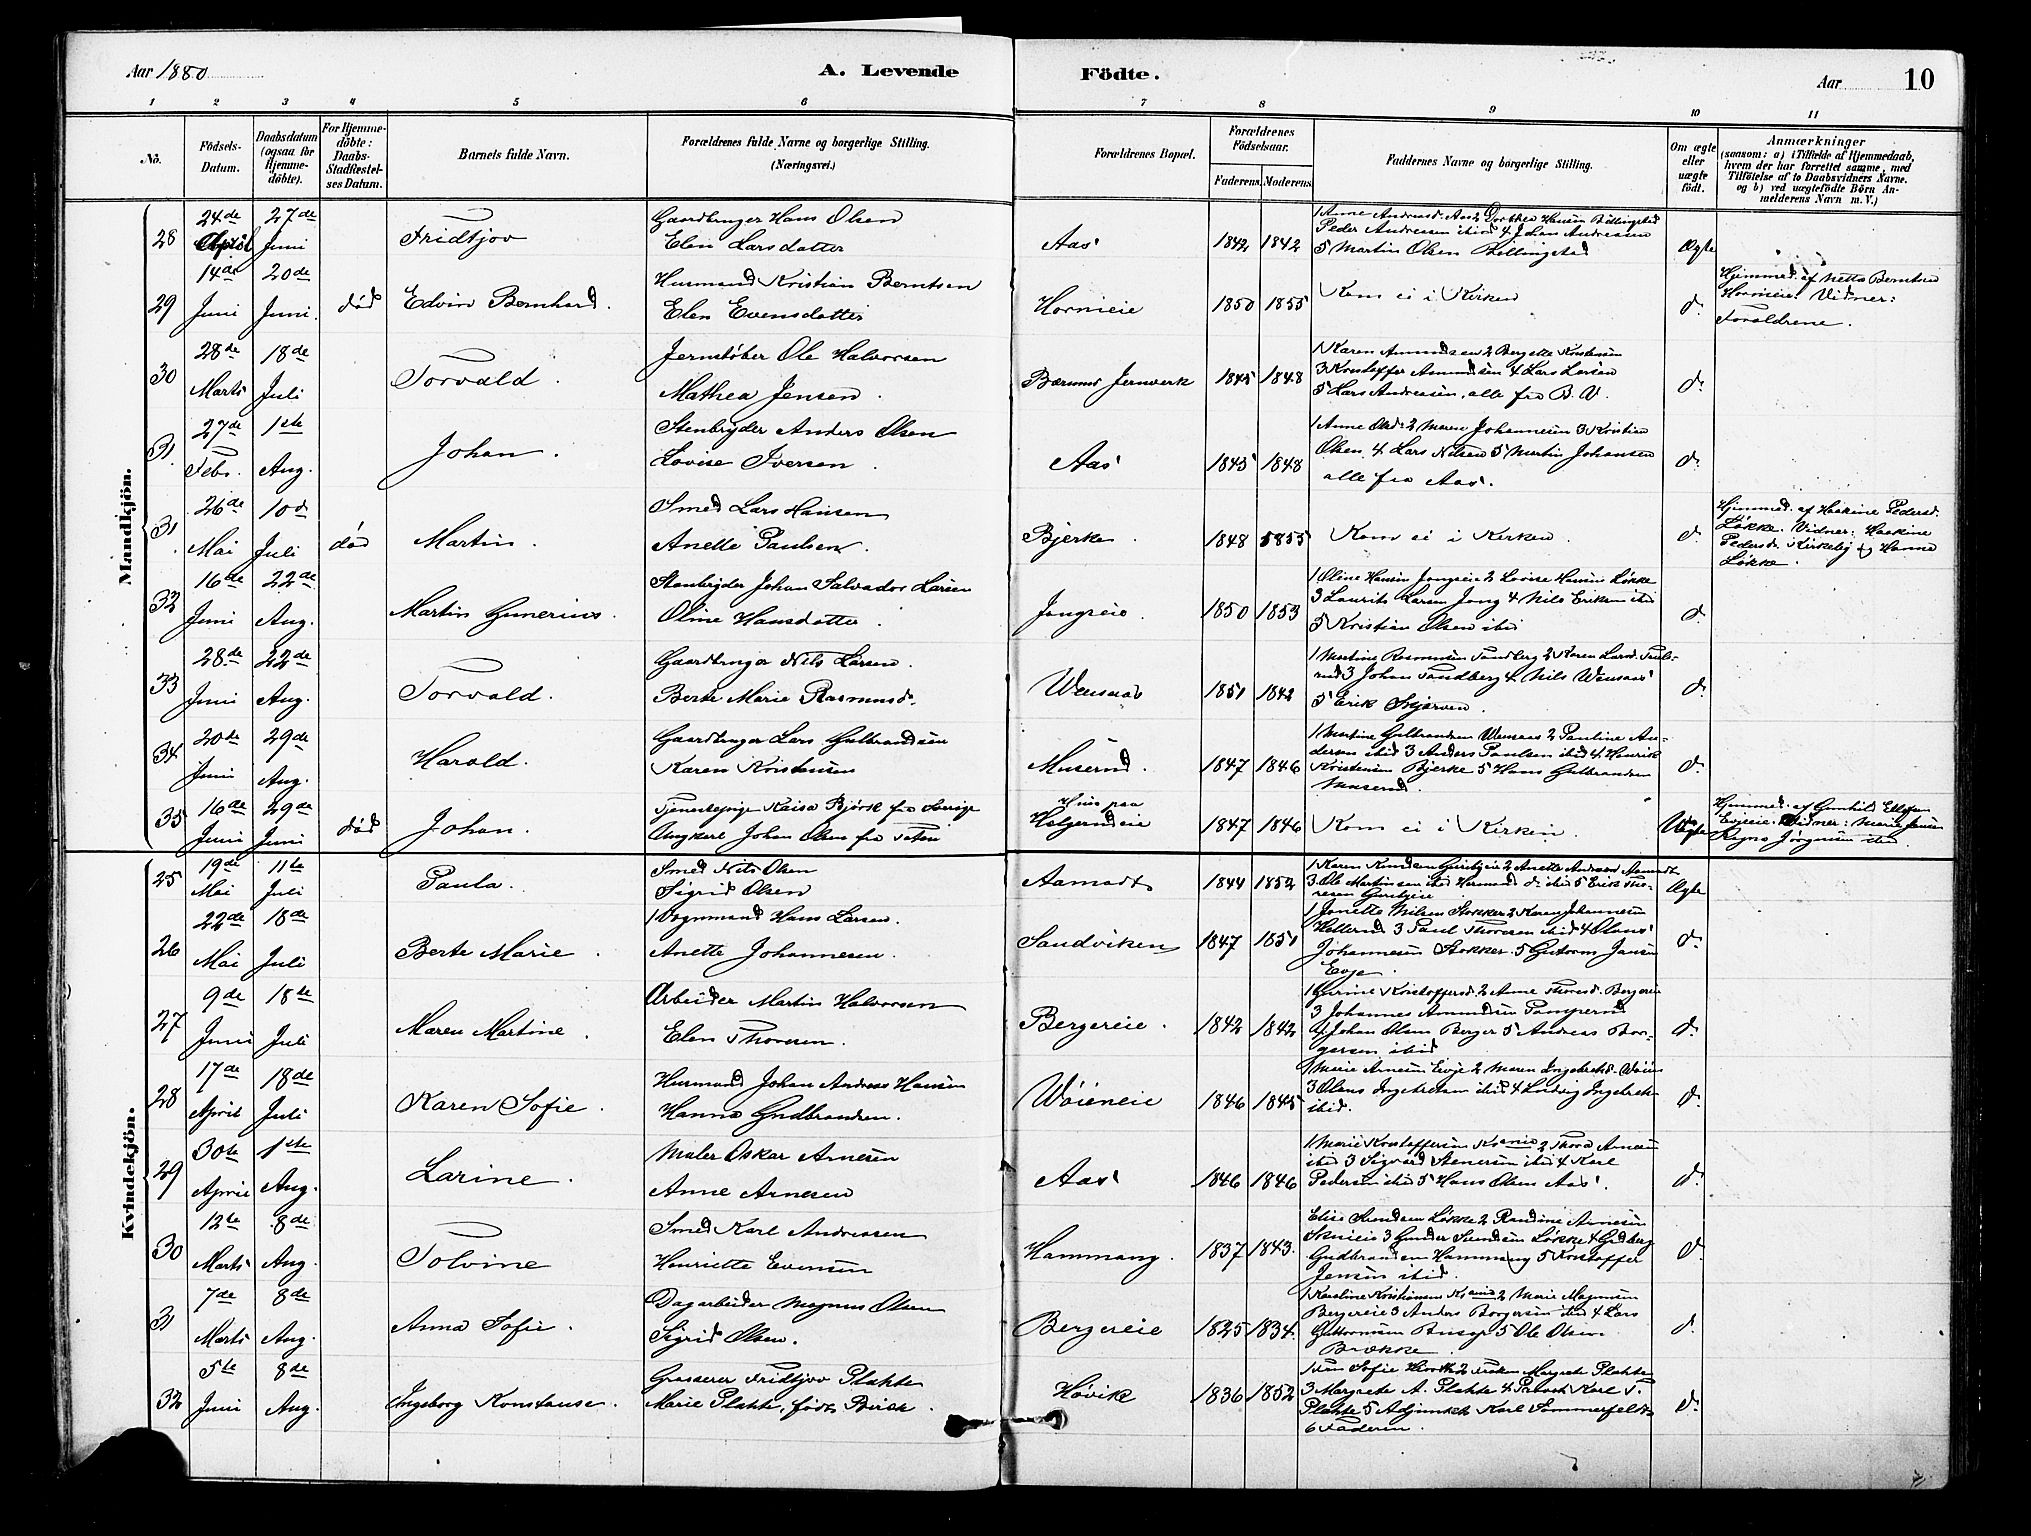 Aar 1880 A. Levende Födte. Aar 10
1 2 3 4 5 6 7 8 9 10 11
No. Födsels-Datum. Daabsdatum (ogsaa for Hjemme-döbte). For Hjemme-döbte: Daabs-Stadfæstel-ses Datum. Barnets fulde Navn. Forældrenes fulde Navne og borgerlige Stilling. (Næringsvei.) Forældrenes Bopæl. Forældrenes Födselsaar. Faderens. Moderens. Faddernes Navne og borgerlige Stilling. Om ægte eller uægte födt. Anmærkninger (saasom: a) i Tilfælde af Hjemmedaab, hvem der har forrettet samme, med Tilföielse af to Daabsvidners Navne, og b) ved uægtefödte Börn An-melderens Navn m. V.)
Mandkjön.
28 24de April 27de Juni Fridtjov Gaardbruger Hans Olsen Elen Larsdatter Aas 1842 1842 1 Anne Andreasd. Aas 2 Dorthea Hansen Billingstad
Peder Andresen ibid 4 Johan Andreassen
5 Martin Olsen Billingstad Ægte
29 14de Juni 20de Juni. død Edvin Bernhard. Husmand Kristian Berntsen Elen Evensdatter Hornieie 1850 1855 Kom ei i Kirken d. Hjemmed. af Mette Berntsen
Hornieie. Vidner:
Forældrene.
30 28de Marts 18de Juli Torvald. Jernstøber Ole Halvorsen Mathea Jensen. Bærums Jernverk 1845 1848 1 Karen Amundsen 2 Bergette Kristensen
3 Kristoffer Amundsen 4 Lars Larsen
5 Lars Andresen, alle fra B. V. d.
31. 27de Febr. 1ste Aug. Johan. Stenbryder Anders Olsen Lovise Iversen. Aas 1845 1848 1 Anne Olsd. 2 Maren Johannesen 3 Kristian
Olsen 4 Lars Nilsen 5 Martin Johansen
alle fra Aas. d.
31. 26de Mai 10d Juli død Martin. Smed Lars Hansen Anette Paulsen Bjerke 1848 1855 Kom ei i Kirken. d. Hjemmed. af Haakine Pedersd.
Løkke. Vidner: Haakine
Pedersd. Kirkeby og Hanna
Løkke.
32 16de Juni 22de Aug. Martin Gunerius. Stenbryder Johan Salvador Larsen Oline Hansdatter. Jongseie. 1850 1853 1 Oline Hansen Jongseie 2 Lovise Hansen Løkke
3 Laurits Larsen Jong 4 Nils Eriksen ibid
5 Kristian Olsen ibid d.
33 28de Juni 22de Aug. Torvald. Gaardbruger Nils Larsen. Berte Marie Rasmusd. Wensaas 1851 1842 1 Martine Rasmussen Sandberg 2 Karen Larsd. Pauls-
rud 3 Johan Sandberg 4 Nils Wensaas
5 Erik Skjærven. d.
34 20de Juni 29de Aug. Harald. Gaardbruger Lars Gulbrandsen Karen Kristensen Muserud. 1847 1846 1 Martine Gulbrandsen Wensaas 2 Pauline An-
dersen ibid 3 Anders Paulsen ibid 4 Henrik
Kristensen Bjerke 5 Hans Gulbrandsen
Muserud. d.
35 16de Juni 29de Juni død Johan. Tjenestepige Kaisa Bjørk fra Sverige Ungkarl Johan Olsen fra Toten Huus paa Holgerudeie 1847 1846 Kom ei i Kirken Uægte Hjemmed. af Gunhild Ellefsen
Evjeeie. Vidner: Marie Jensen
Ragna Jørgensen ibid.
Kvindekjön.
25 19de Mai 11te Juli Paula. Smed Nils Olsen Sigrid Olsen Aamodt 1844 1852 1 Karen Knudsen Guribyeie 2 Anette Andresen Aamodt
3 Ole Martinsen ibid Hermand d. ibid 5 Erik Tho-
resen Guribyeie Ægte
26 22de Mai 18de Juli Berte Marie. Vognmand Hans Larsen. Anette Johannesen. Sandviken 1847 1850 1 Jonette Nilsen Stokker 2 Karen Johannesen
Hellerud 3 Paul Thoresen ibid 4 Olaus
Johannesen Stokker 5 Guttorm Jansen
Evje. d.
27 9de Juni 18de Juli Maren Martine. Arbeider Martin Halvorsen Elen Thoresen. Bergereie. 1842 1842 1 Gurine Kristoffersd. 2 Anne Thoresd. Bergereie
3 Johannes Amundsen Tamperud
4 Johan Olsen Berger 5 Andreas Bor-
gersen ibid d.
28 17de April 18de Juli Karen Sofie. Husmand Johan Andreas Hansen Hanna Gudbrandsen. Wøieneie 1846 1845 1 Marie Arnesen Evje 2 Maren Ingebretsd. Wøien
3 Olaus Ingebretsen ibid 4 Ludvig Ingebretsen
ibid. d.
29 30te April 1ste Aug. Larine. Maler Oskar Arnesen Anne Arnesen Aas 1846 1846 1 Marie Kristoffersen 2 Thora Arnesen
ibid 3 Sigvard Stenersen ibid 4 Karl
Pedersen ibid 5 Hans Olsen Aas. d.
30 12te Marts 8de Aug. Tolvine Smed Karl Andreassen Henriette Evensen Hammang. 1837 1843. Elise Svendsen Løkke 2 Randine Arnesen
3 Gunder Svendsen Løkke 4 Gulberg
Gudbrandsen Hammang 5 Kristoffer
Jensen ibid. d
31 7de Marts 8de Aug. Anna Sofie. Dagarbeider Magnus Olsen Sigrid Olsen. Bergereie 1825 1834. 1 Karoline Kristiansen 2 Marie Magnusen
Bergereie 3 Anders Borgersen ibid 4 Lars
Guttormsen 5 Ole Olsen
Brække. d.
32 5te Juni 8de Aug. Ingeborg Konstanse. Grosserer Fridtjov Plahte Marie Plahte, født Birch. Høvik 1836 1852 1 Frk. Sofie 2 Frøken Margrete Plahte
3 Margrete A. Plahte 4 Karl T.
Plahte 5 Adjunkt Karl Sommerfeldt
6 Faderen. d.